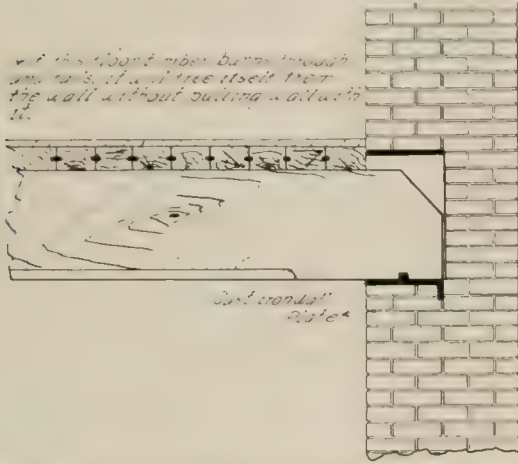 If this floor timber burns through
and falls, it will free itself from
the wall without pulling wall with
it.
Cast iron wall
Plate